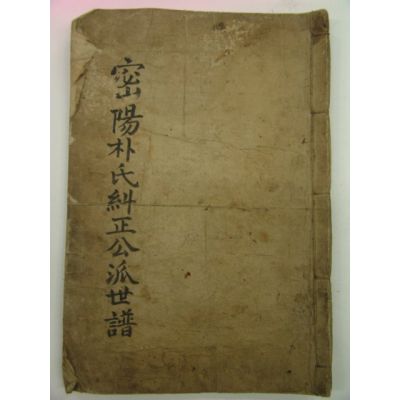 密陽朴氏糾正公派世譜